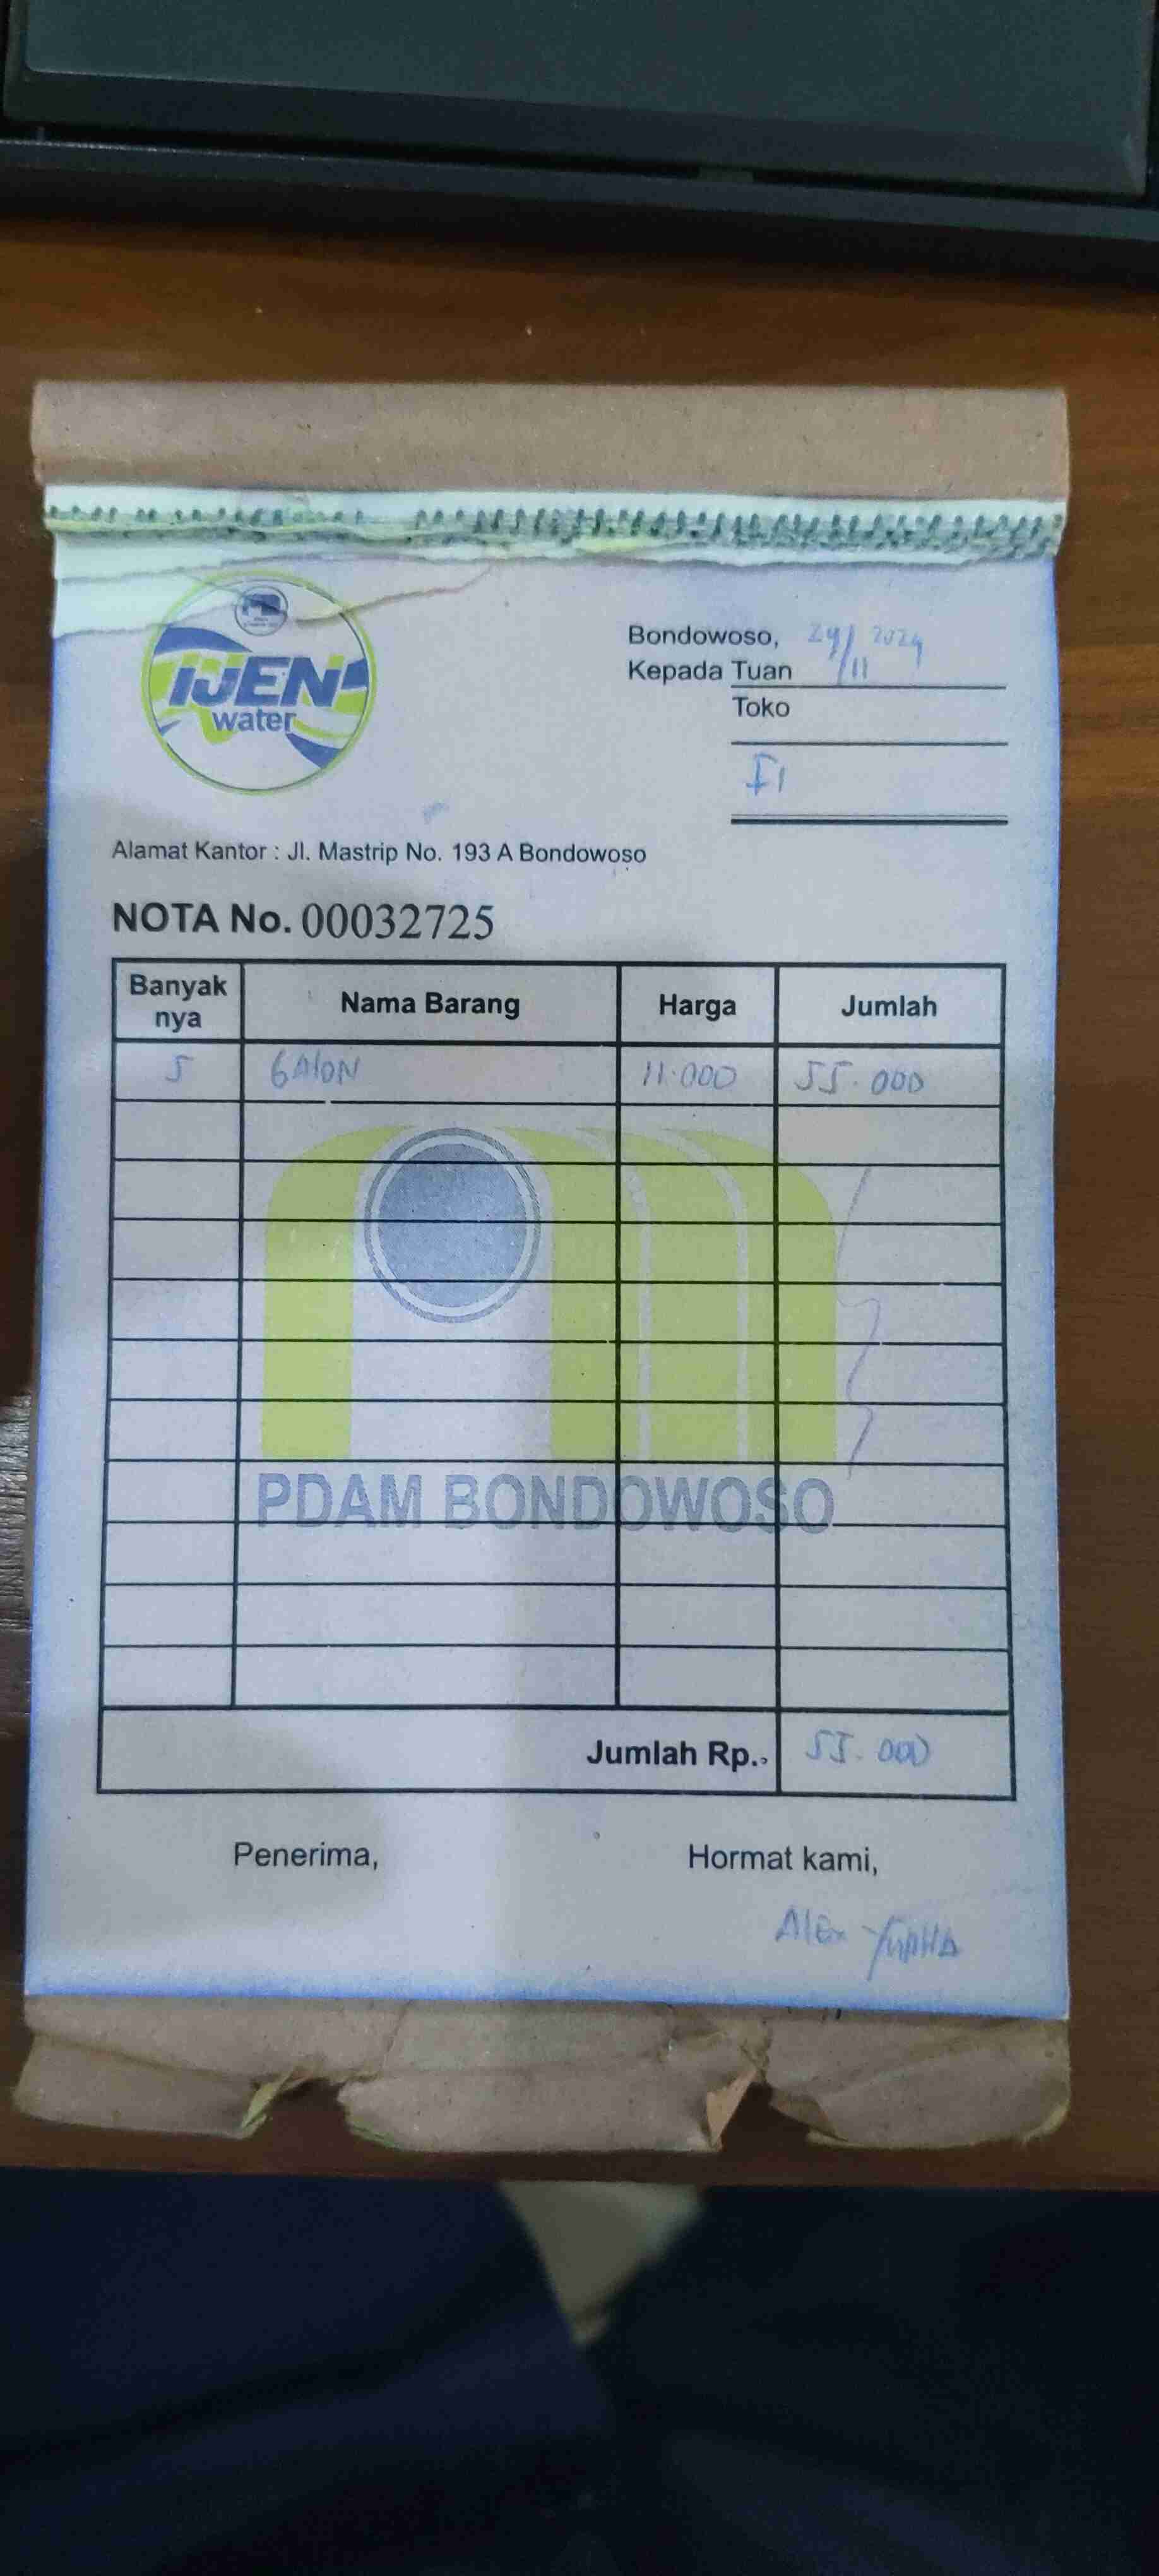 IJEN
water
Bondowoso, 29/11 2024
Kepada Tuan
Toko
Alamat Kantor : Jl. Mastrip No. 193 A Bondowoso
NOTA No. 00032725
Banyak nya Nama Barang Harga Jumlah
5 GAlON 11.000 55.000
PDAM BONDOWOSO
Jumlah Rp., 55.000
Penerima, Hormat kami,
Alex